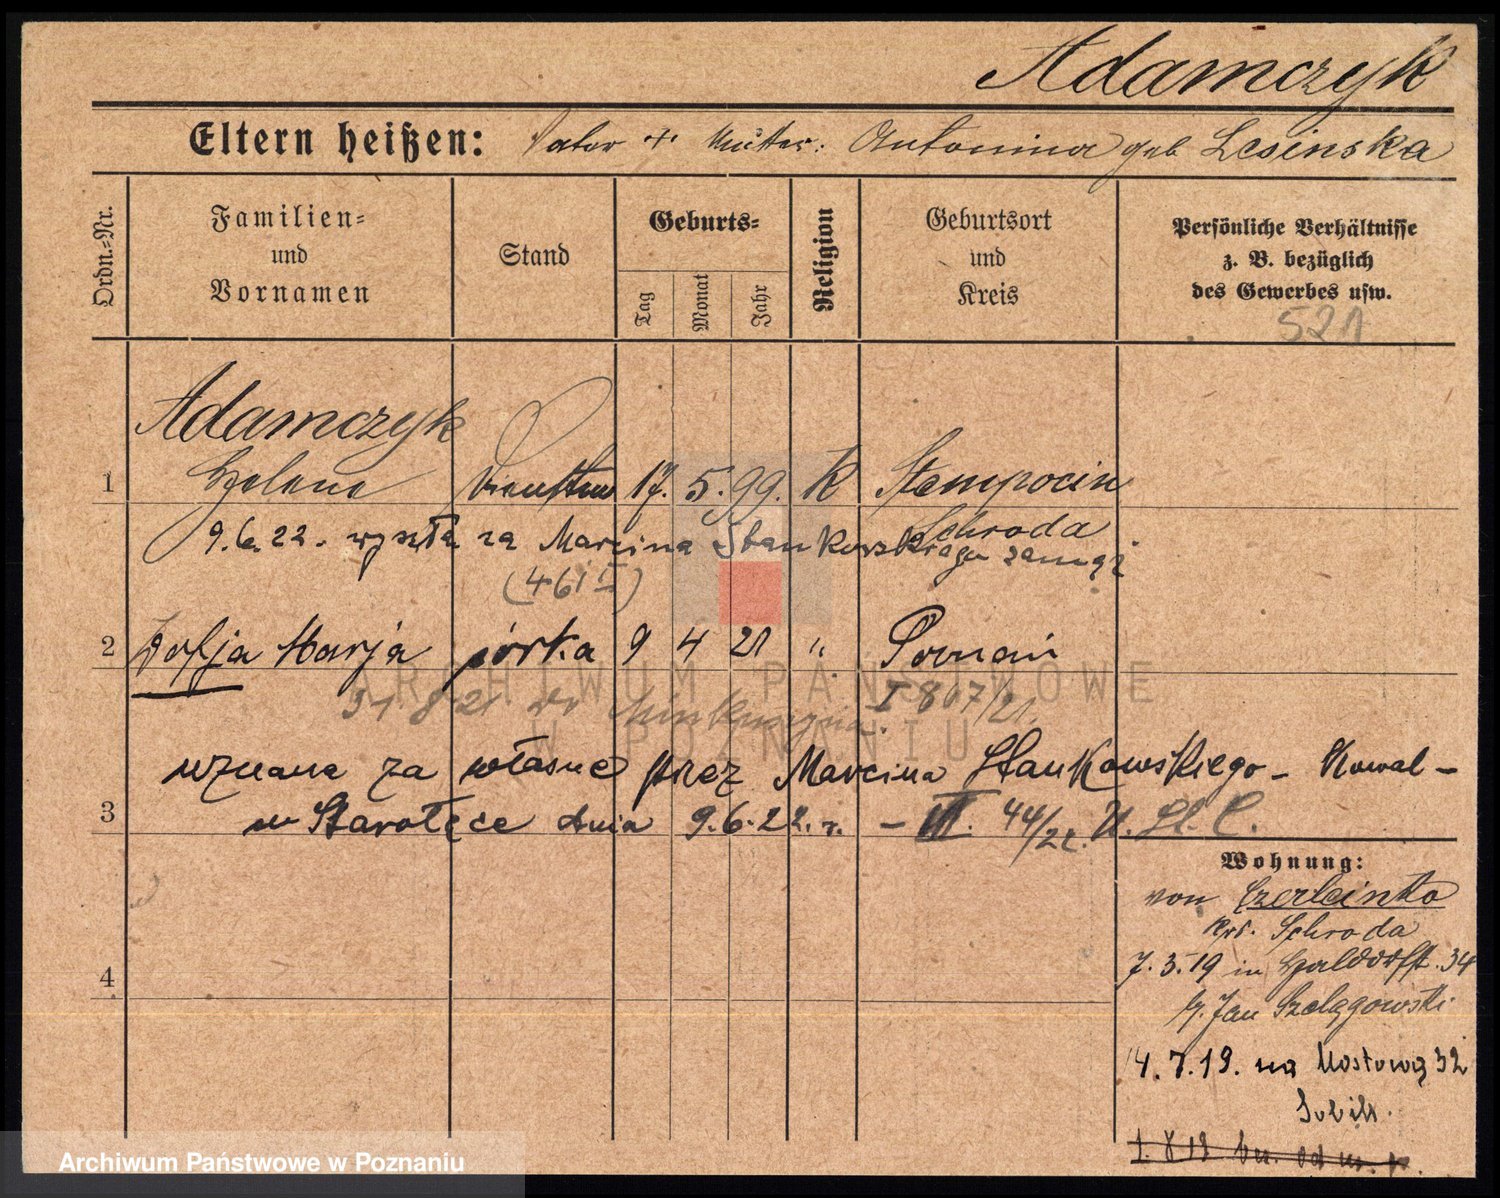 Adamczyk
Eltern heißen: Vater + Mutter: Antonina geb Lesinska
Ordn.=Nr.
Familien= und Vornamen
Stand
Geburts=
Tag
Monat
Jahr
Religion
Geburtsort und Kreis
Persönliche Verhältnisse z. B. bezüglich des Gewerbes usw.
521
Adamczyk
1 Helene 17. 5. 99. K Stempocin
Schroda
9.6.22. wyszła za Marcina Stankowskiego zamąż
(461 I)
2 Zofja Marja córka 9 4 21 " Poznań
31 8 21 I 807/21.
uznane za własne przez Marcina Stankowskiego - Kowal -
3 w Starołęce dnia 9.6.22. r. - III. 44/22. U. St. C.
4
Wohnung:
von
Krs. Schroda
7.3.19 in 34
b/. Jan Szelągowski.
14.7.19. na Mostową 32
1 8 19
ARCHIWUM PAŃSTWOWE
W POZNANIU
Archiwum Państwowe w Poznaniu